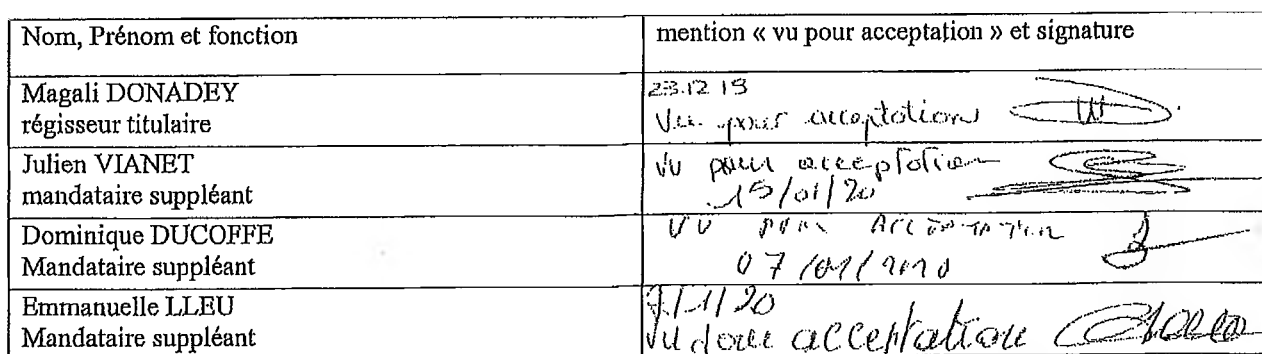 Nom, Prénom et fonction
mention « vu pour acceptation » et signature
Magali DONADEY
régisseur titulaire
23.12.19
Vu pour acceptation
Julien VIANET
mandataire suppléant
Vu pour acceptation
15/01/20
Dominique DUCOFFE
Mandataire suppléant
VU POUR ACCEPTATION
07/01/2020
Emmanuelle LLEU
Mandataire suppléant
7/1/20
Vu pour acceptation